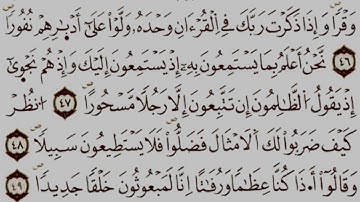 وَقْرًا وَإِذَا ذَكَرْتَ رَبَّكَ فِي الْقُرْءَانِ وَحْدَهُ وَلَّوْا عَلَىٰ أَدْبَٰرِهِمْ نُفُورًا
٤٦ نَّحْنُ أَعْلَمُ بِمَا يَسْتَمِعُونَ بِهِ إِذْ يَسْتَمِعُونَ إِلَيْكَ وَإِذْ هُمْ نَجْوَىٰ
إِذْ يَقُولُ الظَّٰلِمُونَ إِن تَتَّبِعُونَ إِلَّا رَجُلًا مَّسْحُورًا ٤٧ انظُرْ
كَيْفَ ضَرَبُوا لَكَ الْأَمْثَالَ فَضَلُّوا فَلَا يَسْتَطِيعُونَ سَبِيلًا ٤٨
وَقَالُوا أَءِذَا كُنَّا عِظَٰمًا وَرُفَٰتًا إِنَّا لَمَبْعُوثُونَ خَلْقًا جَدِيدًا ٤٩